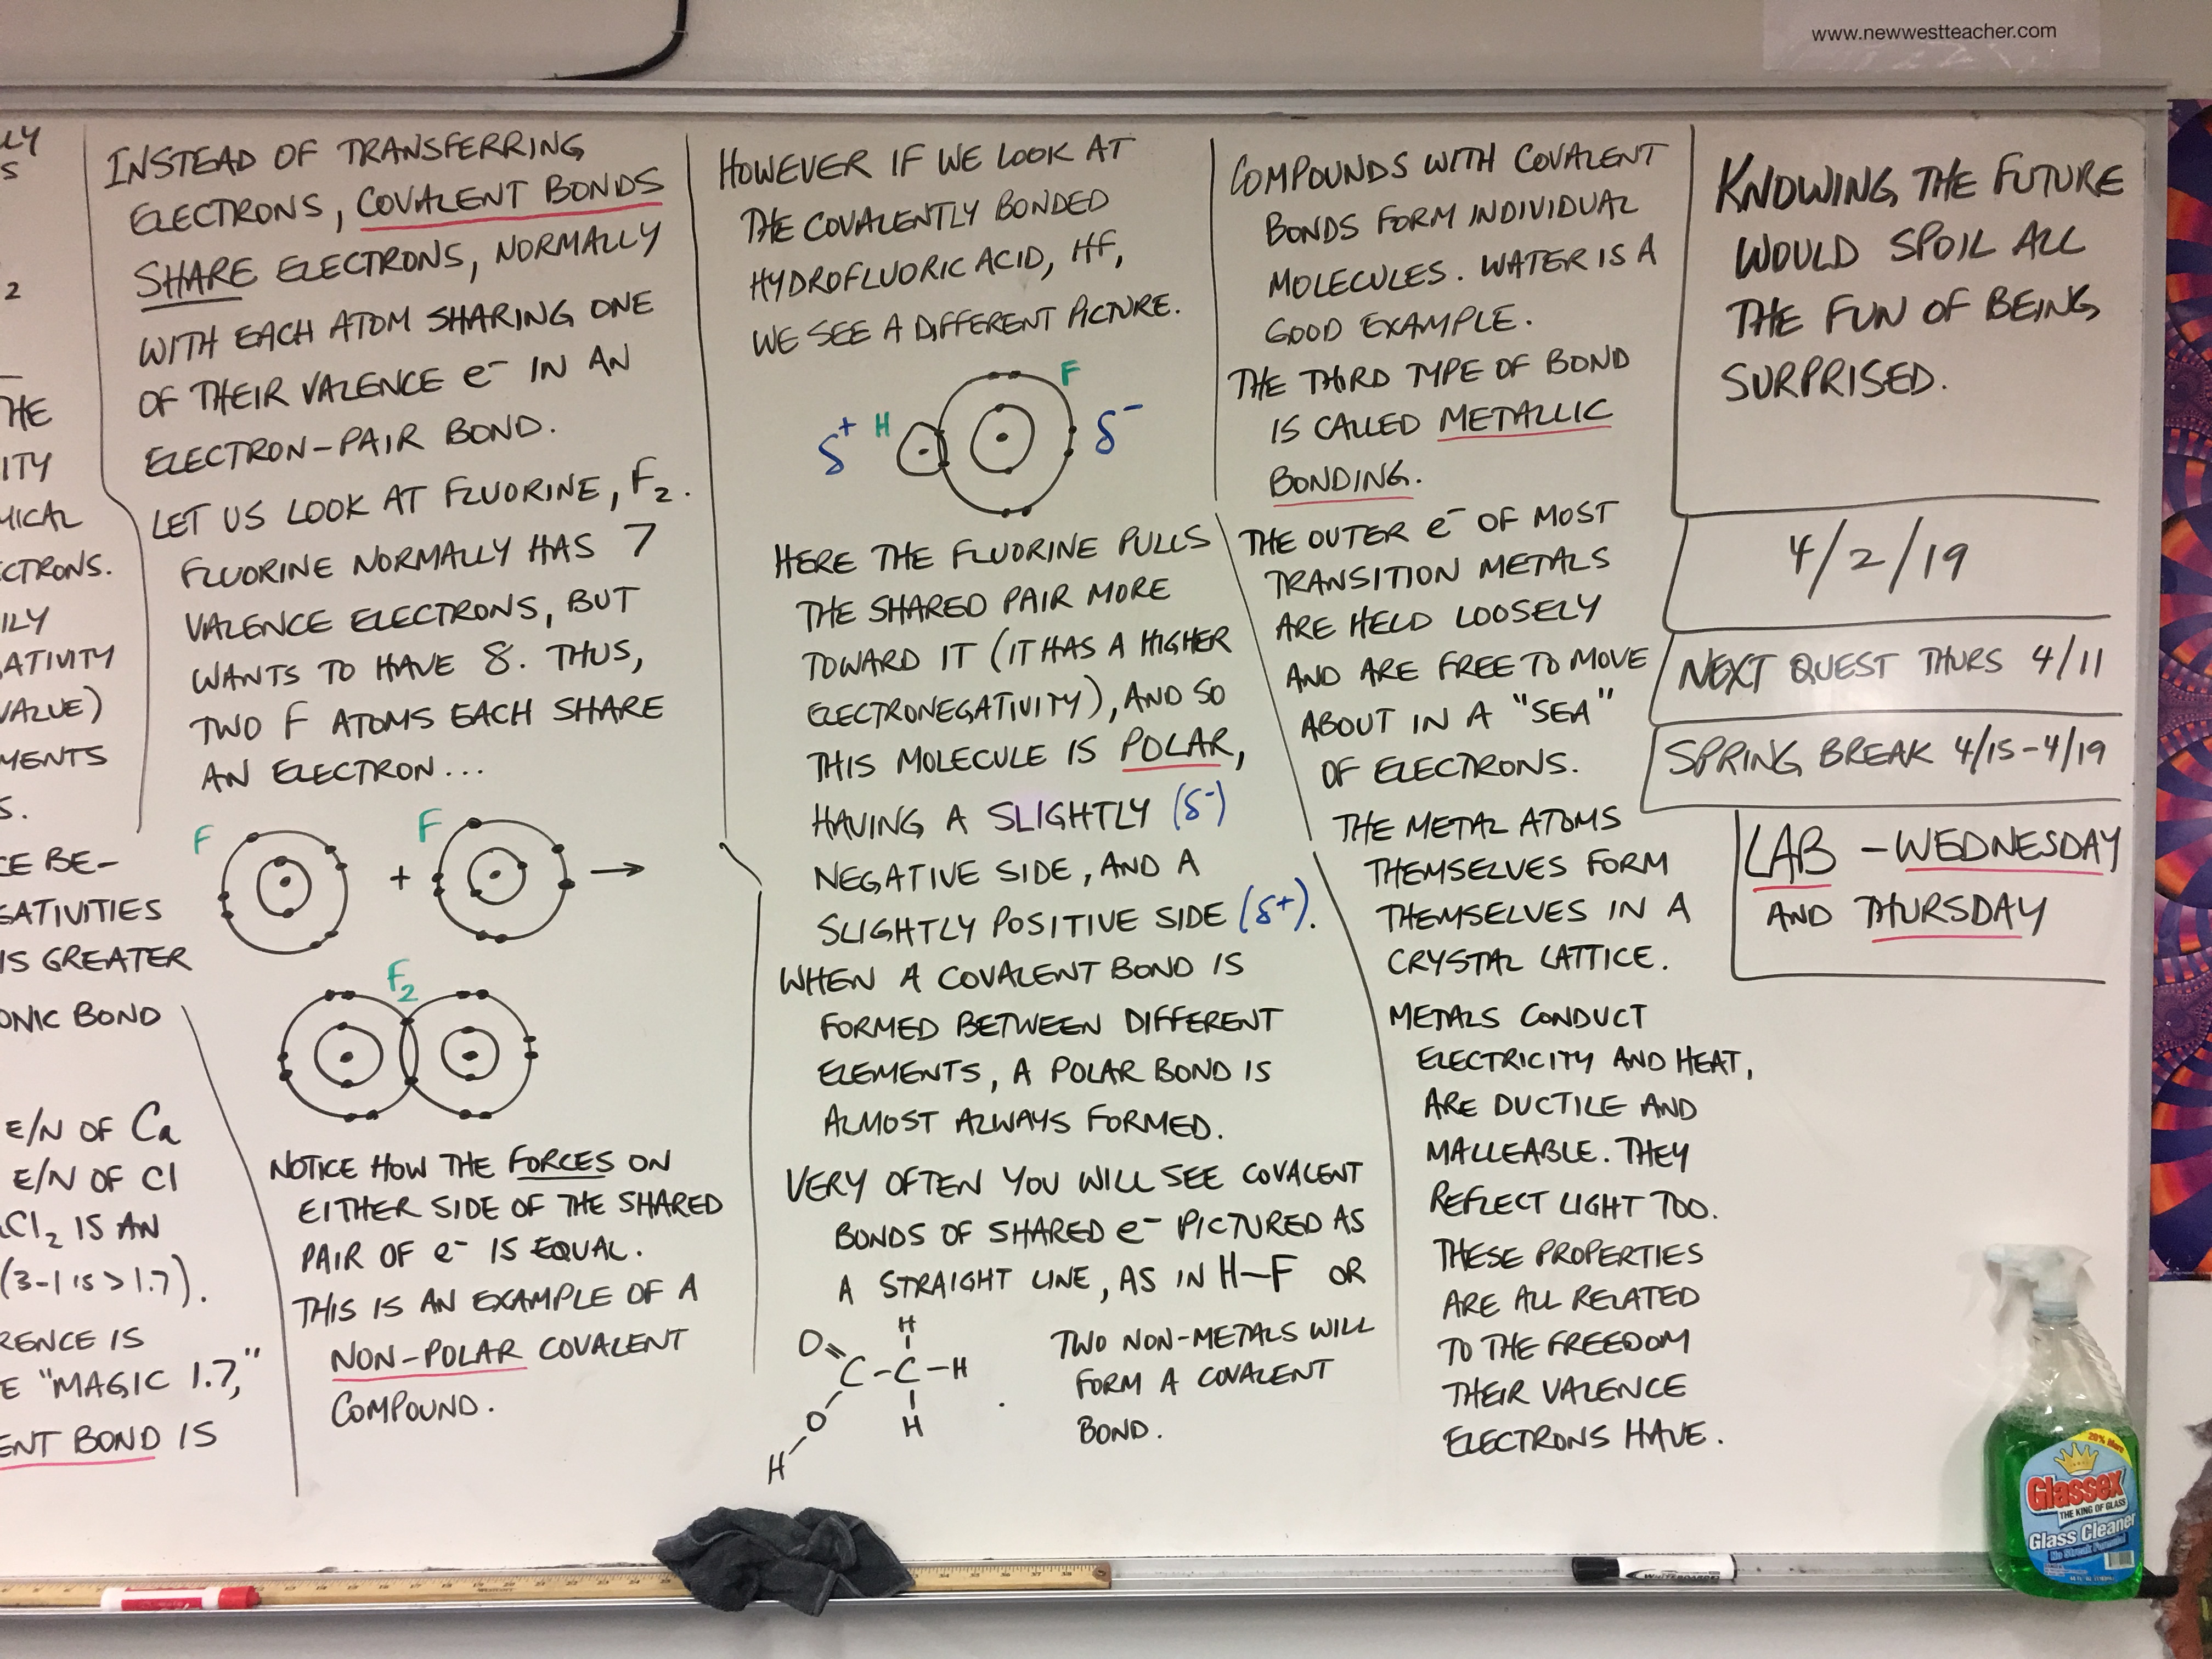 www.newwestteacher.com
LLY
S
2
THE
ITY
MICAL
CTRONS.
ILY
ATIVITY
VALUE)
MENTS
S.
CE BE-
GATIVITIES
IS GREATER
ONIC BOND
E/N OF Ca
E/N OF Cl
Cl2 IS AN
(3-1 IS > 1.7).
RENCE IS
E "MAGIC 1.7,"
ENT BOND IS
INSTEAD OF TRANSFERRING
ELECTRONS, COVALENT BONDS
SHARE ELECTRONS, NORMALLY
WITH EACH ATOM SHARING ONE
OF THEIR VALENCE e- IN AN
ELECTRON-PAIR BOND.
LET US LOOK AT FLUORINE, F2.
FLUORINE NORMALLY HAS 7
VALENCE ELECTRONS, BUT
WANTS TO HAVE 8. THUS,
TWO F ATOMS EACH SHARE
AN ELECTRON...
F + F →
F2
NOTICE HOW THE FORCES ON
EITHER SIDE OF THE SHARED
PAIR OF e- IS EQUAL.
THIS IS AN EXAMPLE OF A
NON-POLAR COVALENT
COMPOUND.
HOWEVER IF WE LOOK AT
THE COVALENTLY BONDED
HYDROFLUORIC ACID, HF,
WE SEE A DIFFERENT PICTURE.
F
δ+ H δ-
HERE THE FLUORINE PULLS
THE SHARED PAIR MORE
TOWARD IT (IT HAS A HIGHER
ELECTRONEGATIVITY), AND SO
THIS MOLECULE IS POLAR,
HAVING A SLIGHTLY (δ-)
NEGATIVE SIDE, AND A
SLIGHTLY POSITIVE SIDE (δ+).
WHEN A COVALENT BOND IS
FORMED BETWEEN DIFFERENT
ELEMENTS, A POLAR BOND IS
ALMOST ALWAYS FORMED.
VERY OFTEN YOU WILL SEE COVALENT
BONDS OF SHARED e- PICTURED AS
A STRAIGHT LINE, AS IN H-F OR
H
O
C-C-H
O H
H
.
TWO NON-METALS WILL
FORM A COVALENT
BOND.
COMPOUNDS WITH COVALENT
BONDS FORM INDIVIDUAL
MOLECULES. WATER IS A
GOOD EXAMPLE.
THE THIRD TYPE OF BOND
IS CALLED METALLIC
BONDING.
THE OUTER e- OF MOST
TRANSITION METALS
ARE HELD LOOSELY
AND ARE FREE TO MOVE
ABOUT IN A "SEA"
OF ELECTRONS.
THE METAL ATOMS
THEMSELVES FORM
THEMSELVES IN A
CRYSTAL LATTICE.
METALS CONDUCT
ELECTRICITY AND HEAT,
ARE DUCTILE AND
MALLEABLE. THEY
REFLECT LIGHT TOO.
THESE PROPERTIES
ARE ALL RELATED
TO THE FREEDOM
THEIR VALENCE
ELECTRONS HAVE.
KNOWING THE FUTURE
WOULD SPOIL ALL
THE FUN OF BEING
SURPRISED.
4/2/19
NEXT QUEST THURS 4/11
SPRING BREAK 4/15-4/19
LAB - WEDNESDAY
AND THURSDAY
20% More
Glassex
THE KING OF GLASS
Glass Cleaner
No Streak Formula!